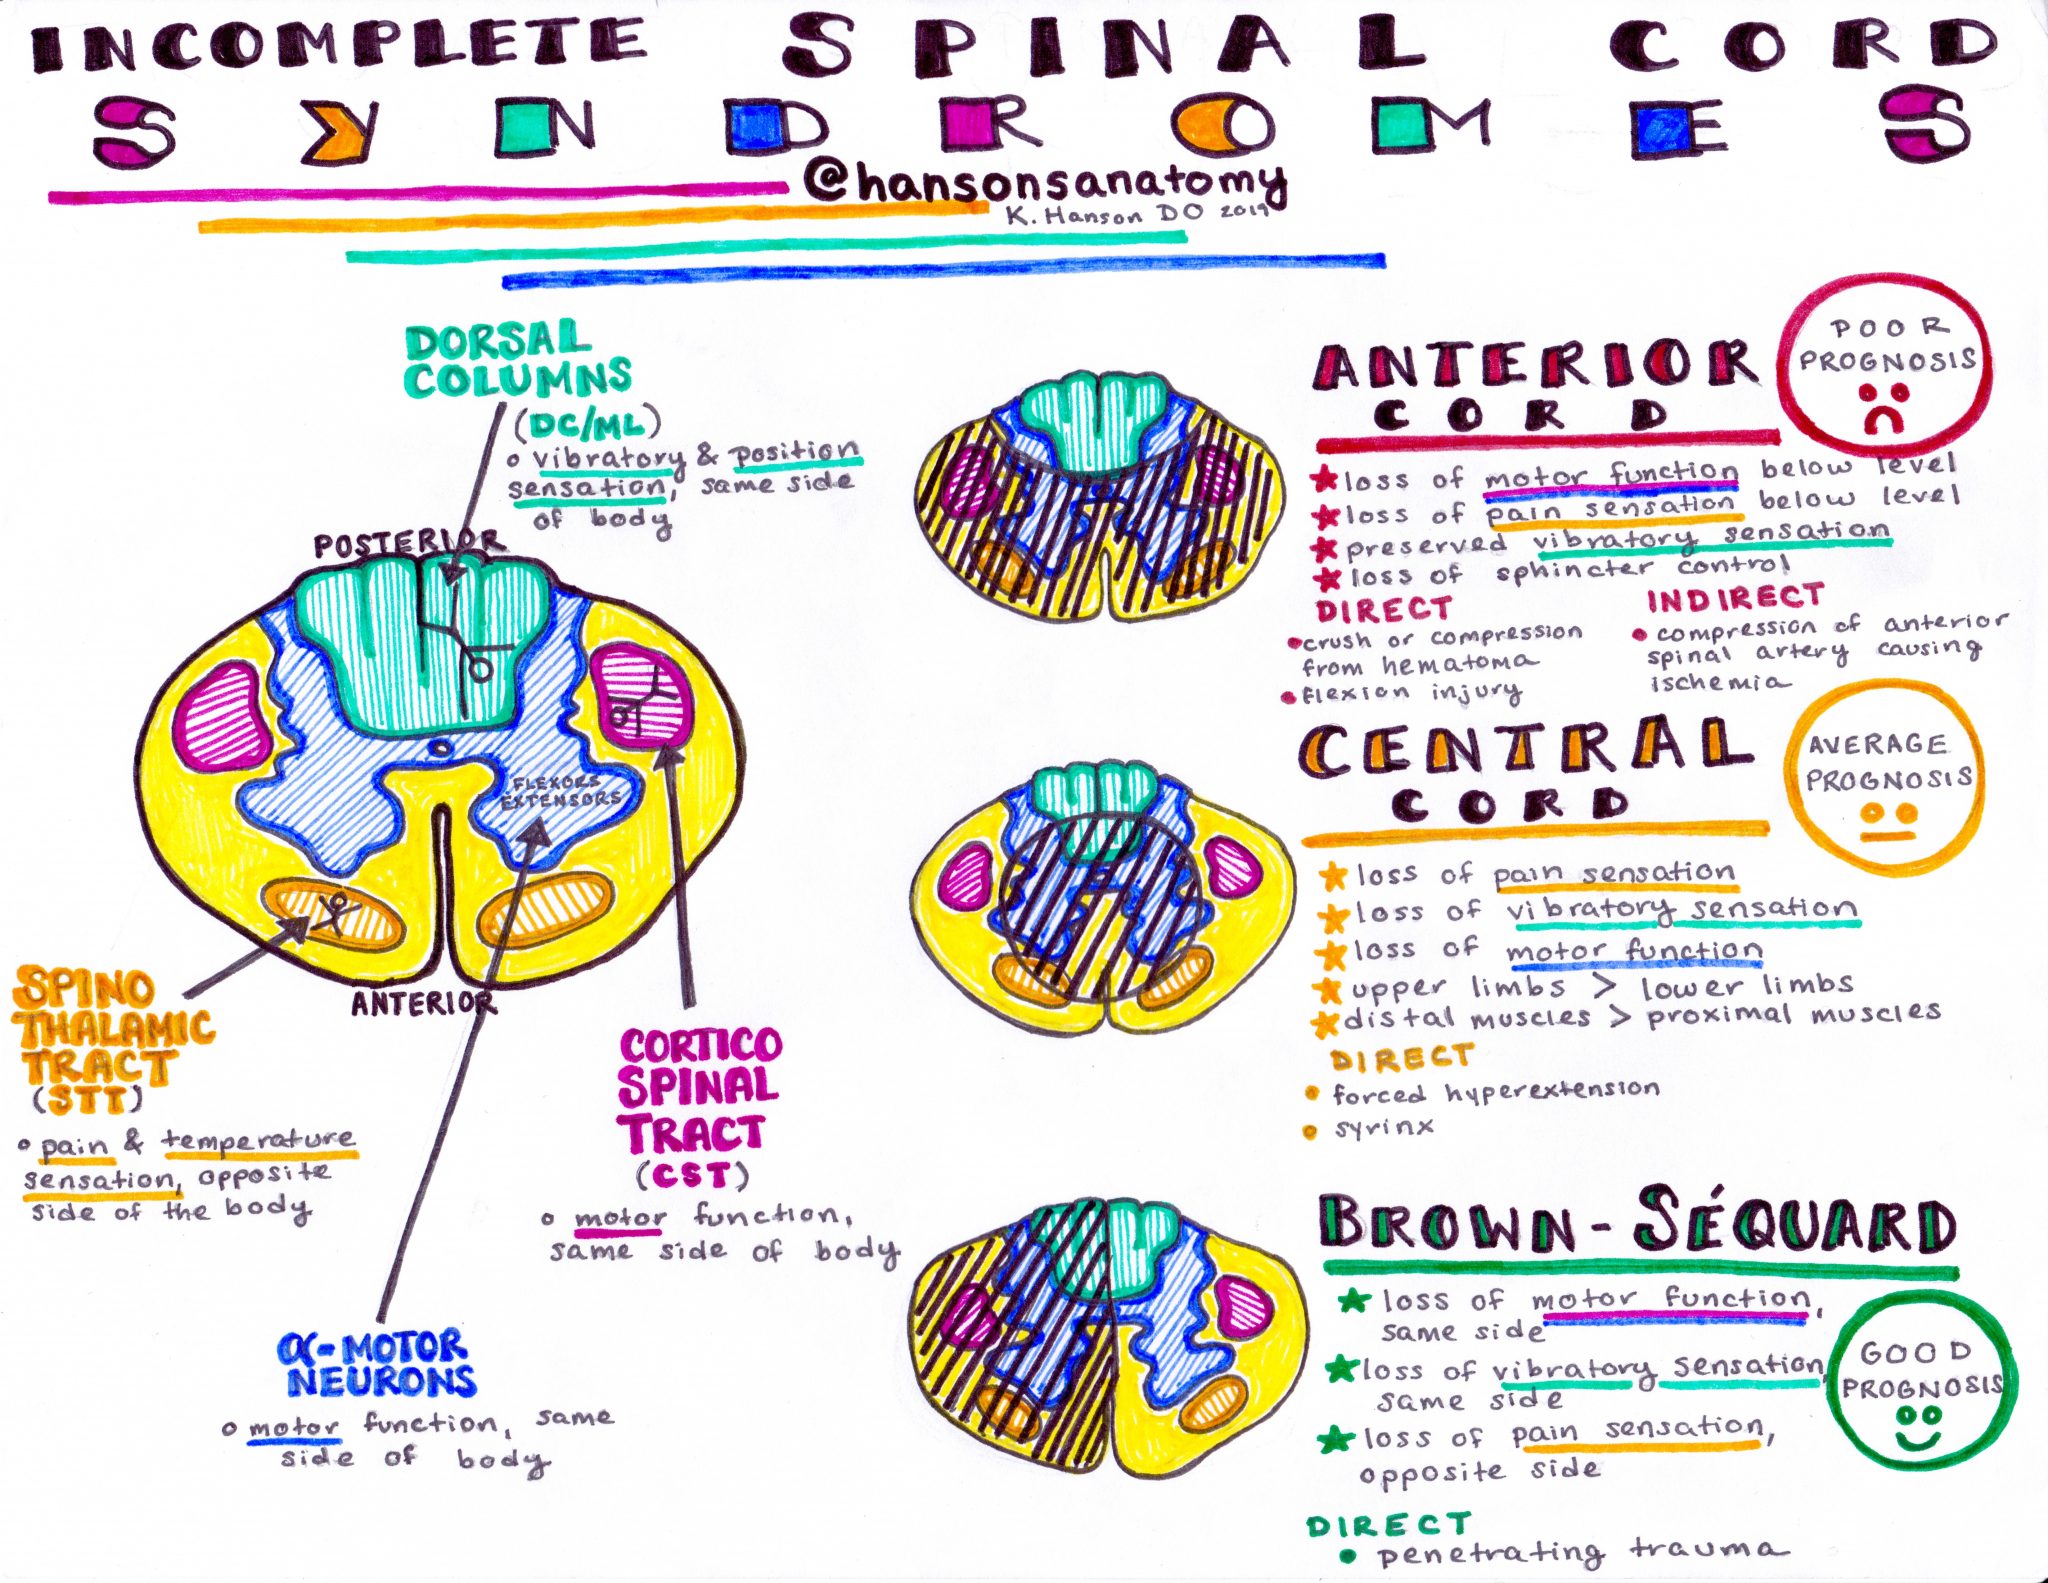 INCOMPLETE SPINAL CORD
SYNDROMES
@hansonsanatomy
K. Hanson DO 2019
DORSAL
COLUMNS
(DC/ML)
vibratory & position
sensation, same side
of body
POSTERIOR
FLEXORS
EXTENSORS
ANTERIOR
SPINO
THALAMIC
TRACT
(STT)
pain & temperature
sensation, opposite
side of the body
CORTICO
SPINAL
TRACT
(CST)
motor function,
same side of body
α-MOTOR
NEURONS
motor function, same
side of body
ANTERIOR
CORD
POOR
PROGNOSIS
loss of motor function below level
loss of pain sensation below level
preserved vibratory sensation
loss of sphincter control
DIRECT
crush or compression
from hematoma
flexion injury
INDIRECT
compression of anterior
spinal artery causing
ischemia
CENTRAL
CORD
AVERAGE
PROGNOSIS
loss of pain sensation
loss of vibratory sensation
loss of motor function
upper limbs > lower limbs
distal muscles > proximal muscles
DIRECT
forced hyperextension
syrinx
BROWN-SÉQUARD
loss of motor function,
same side
loss of vibratory sensation,
same side
loss of pain sensation,
opposite side
GOOD
PROGNOSIS
DIRECT
penetrating trauma